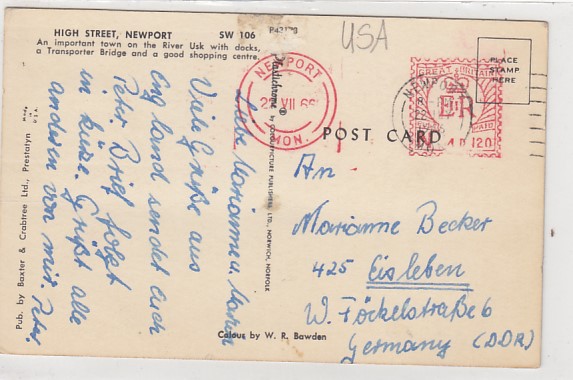 HIGH STREET, NEWPORT SW 106
An important town on the River Usk with docks,
a Transporter Bridge and a good shopping centre.
USA
NEWPORT
VII 66
MON.
GREAT BRITAIN
E R
POSTAGE PAID
PLACE
STAMP
HERE
POST CARD
Plastichrome ® by COLOURPICTURE PUBLISHERS, LTD., NORWICH, NORFOLK
Liebe Marianne u.
Viele Grüße aus
England sendet Euch
Peter. Brief folgt
in kürze. Grüßt alle
anderen von mir. Peter.
An
Marianne Becker
425 Eisleben
W. Föckelstraße 6
Germany (DDR)
Pub. by Baxter & Crabtree Ltd., Prestatyn
U.S.A.
Colour by W. R. Bawden